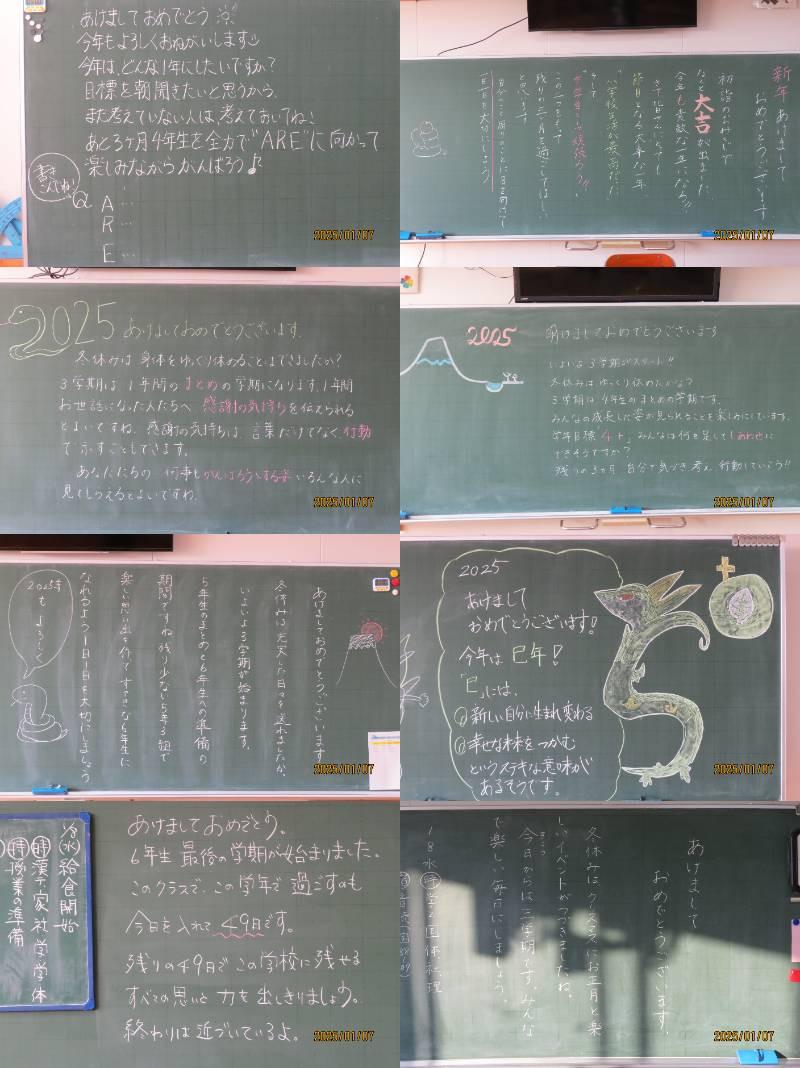 あけましておめでとう
今年もよろしくおねがいします
今年は、どんな1年にしたいですか?
目標を朝聞きたいと思うから、
まだ考えていない人は考えておいてね!
あと3ヶ月4年生を全力で"ARE"に向かって
楽しみながらがんばろう♪
書き
こんでね!
Q
A …
R …
E …
2025/01/07
新年あけまして
おめでとうございます
初詣のおみくじで
なんと大吉が出ました
今年も素敵な一年になる!!
節目となる大事な一年
そして
残りの三ヶ月を過ごしてほしい
と思います
自分のこと周りのことに目を向けて
一日一日を大切にしましょう
2025/01/07
2025 あけましておめでとうございます。
冬休みは身体をゆっくり休めることはできましたか?
3学期は1年間のまとめの学期になります。1年間
お世話になった人たちへ感謝の気持ちを伝えられる
とよいですね。感謝の気持ちは、言葉だけでなく行動
で示すこともできます。
あなたたちの何事もがんばろうとする姿いろんな人に
見てもらえるとよいですね。
2025/01/07
2025 明けましておめでとうございます
いよいよ3学期がスタート!!
冬休みはゆっくり休めたかな?
3学期は4年生のまとめの学期です。
みんなの成長した姿が見られることを楽しみにしています。
学年目標「4+」みんなは何を足してしあわせに
できそうですか?
残りの3ヶ月 自分で気づき、考え、行動していこう!!
2025/01/07
あけましておめでとうございます
冬休みは充実した日々を送れましたか。
いよいよ3学期が始まります。
5年生のまとめと6年生への準備の
期間ですね。残り少ない5年3組で
楽しい思い出を作ってすてきな6年生に
なれるよう1日1日を大切にしましょう
2025年
もよろしく
2025/01/07
2025
あけまして
おめでとうございます!
今年は巳年!
「巳」には、
①新しい自分に生まれ変わる
②幸せな未来をつかむ
というステキな意味が
あるそうです。
2025/01/07
1/8(水)給食開始
時漢テ家社学学体
持授業の準備
あけましておめでとう。
6年生最後の学期が始まりました。
このクラスで、この学年で過ごすのも
今日を入れて49日です。
残りの49日でこの学校に残せる
すべての思いと力を出しきりましょう。
終わりは近づいているよ。
2025/01/07
あけまして
おめでとうございます。
冬休みはクリスマスにお正月と楽
しいイベントがつづきましたね。
今日からは三学期です。みんな
で楽しい毎日にしましょう。
2025/01/07